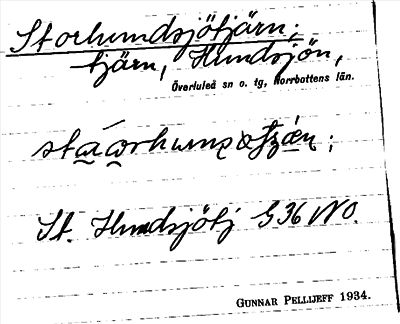 Storhundsjötjärn;
tjärn, Hundsjön,
Överluleå sn o. tg, Norrbottens län.
St. Hundsjötj G 36 NO.
GUNNAR PELLIJEFF 1934.